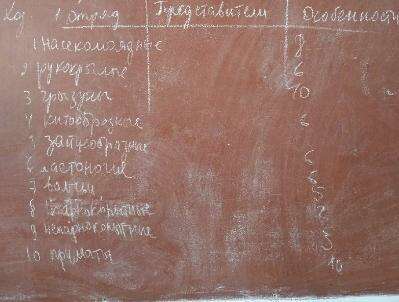 Код Отряд Представители Особенности
1 Насекомоядные 8
2 рукокрылые 6
3 грызуны 10
4 китообразные 6
5 зайцеобразные
6 ластоногие 6
7 6
8
9 непарнокопытные
10 приматы 10